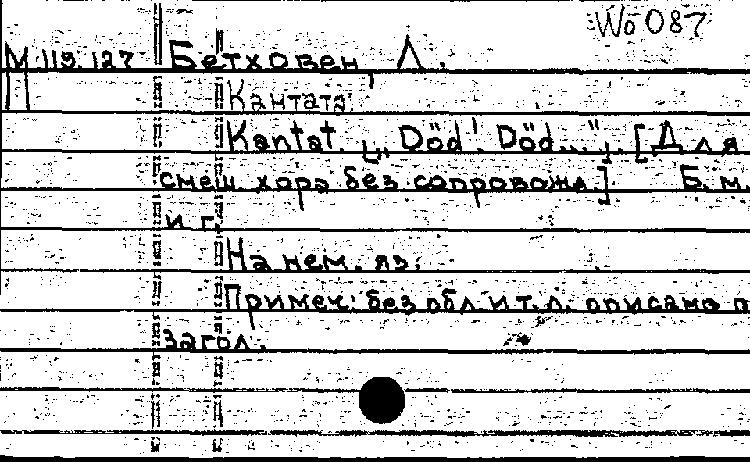 Wo 087
М 119.127 Бетховен, Л.
Кантата
Kantat. „Död! Död...“. [Для
смеш. хора без сопровожд.] Б. м.
и г.
На нем. яз.
Примеч.: без обл. и т. л. описано п
загол.